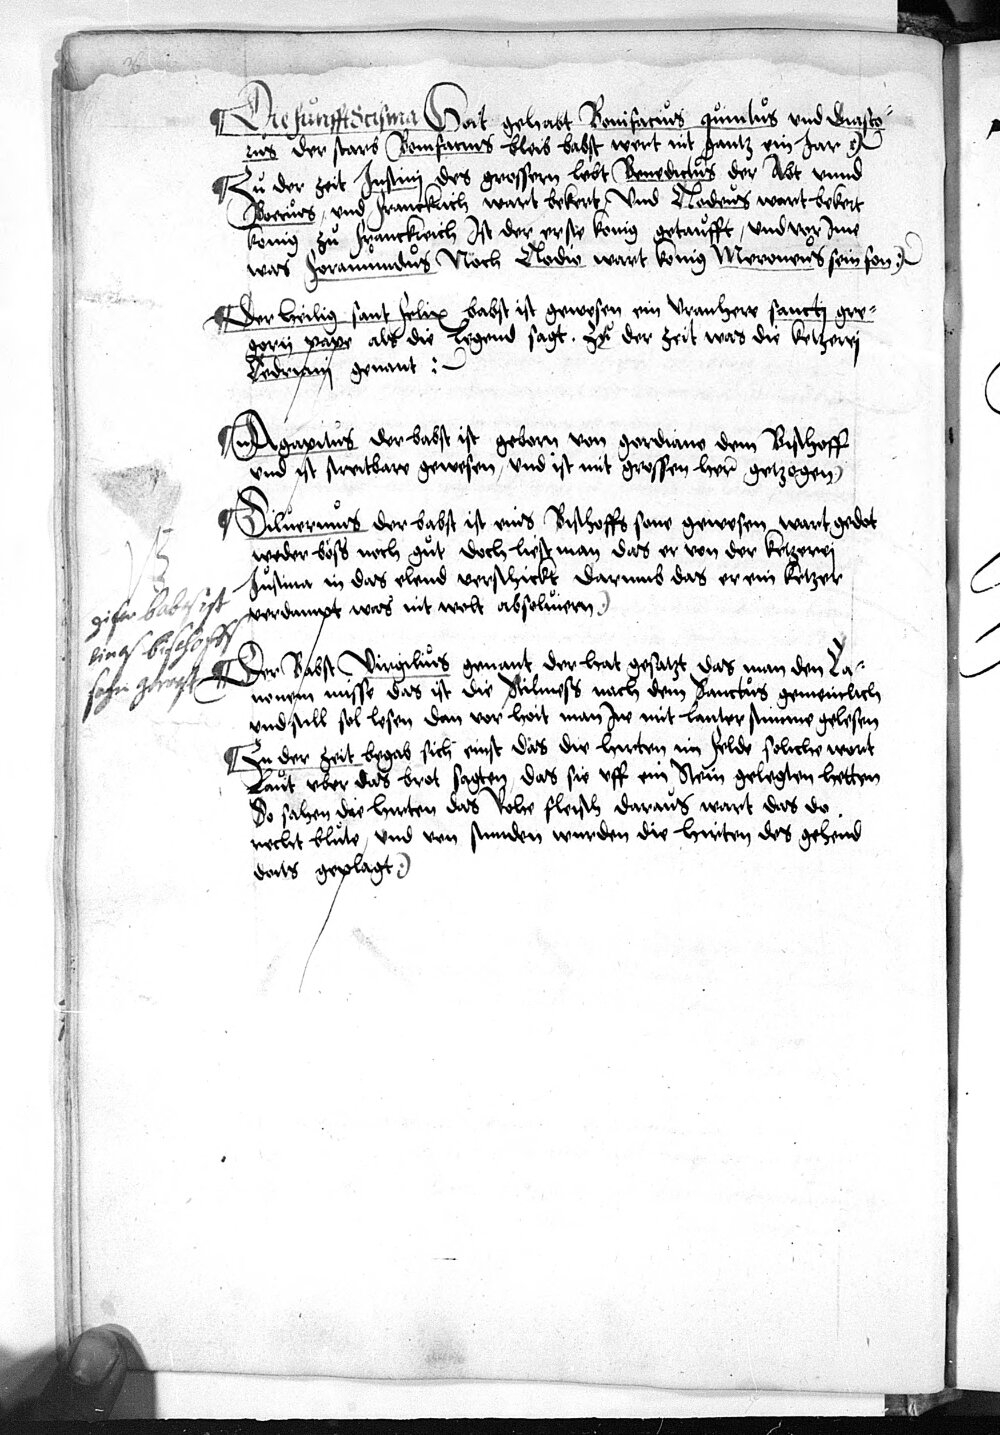 Die funfft Scisma Hait gehabt Bonifacius quintus vnd Diasco-
rus der starb Bonifacius bleib babst wert nit gantz ein Jar
Zu der zeit Justini des grossern lebt Benedictus der Abt vnnd
Boecius, vnd Franckrich wart bekert, Vnd Clodeus wart bekert
konig zu Franckreich Ist der erste konig getaufft, vnd vor Ime
was Foramundus Noch Clodie wart konig Meroneus sein son
Der heilig sant Felix babst ist gewesen ein Vranherr sancti gre-
gorii pape als die legend sagt. Zu der zeit was die ketzerej
genant
Agapitus der babst ist geborn von gordiano dem Bischoff
vnd ist streitbare gewesen, vnd ist mit grossen here getzogen
Siluerinus der babst ist eins Bischoffs sone gewesen wart gedot
weder böss noch gut doch liess man das er von der ketzerei
Justina in das elend verschickt Darumb das er ein ketzer
verdampt was nit wolt absoluiern
diser babst ist
eines bischoffs
sohn gewest
Der Babst Virgilius genant der hat gesatzt das man den Ca-
nonem misse das ist die Stilmess nach dem Sanctus gemeinlich
vnd still sol lesen dan vor hait man Ine mit lauter stimme gelesen
Zu der zeit begab sich einst das die hirten im felde soliche wort
Laut vber das brot sagten, das sie vff ein Stein gelegten hetten
So sahen die hirten das Rohe fleisch daraus wart das do
recht blute, vnd von stunden wurden die hirten des gehend
doits geplagt